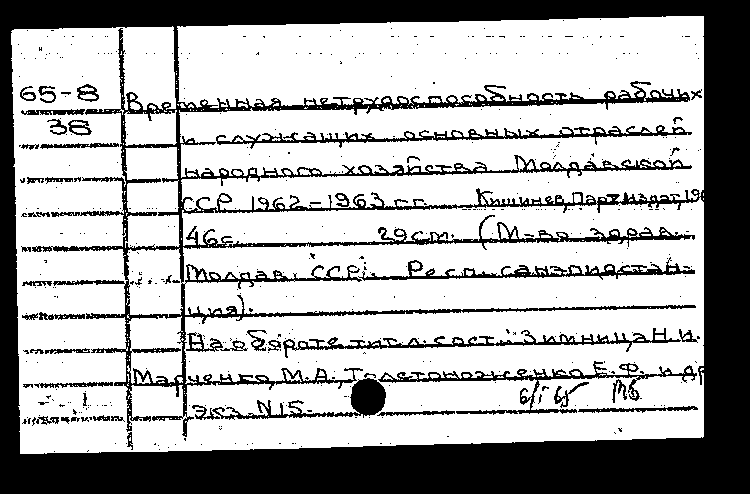 65-8 Временная нетрудоспособность рабочих
38 и служащих основных отраслей
народного хозяйства Молдавской
ССР 1962-1963 г.г. Кишинев, Партиздат, 196
46с. 29см. (М-во здрав.
Молдав. ССР. Респ. санэпидстан-
ция).
На обороте тит. л. сост.: Зимница Н.И.
Марченко, М.А., Толстоноженко Е.Ф. и др
Экз. N15. 6/I 65